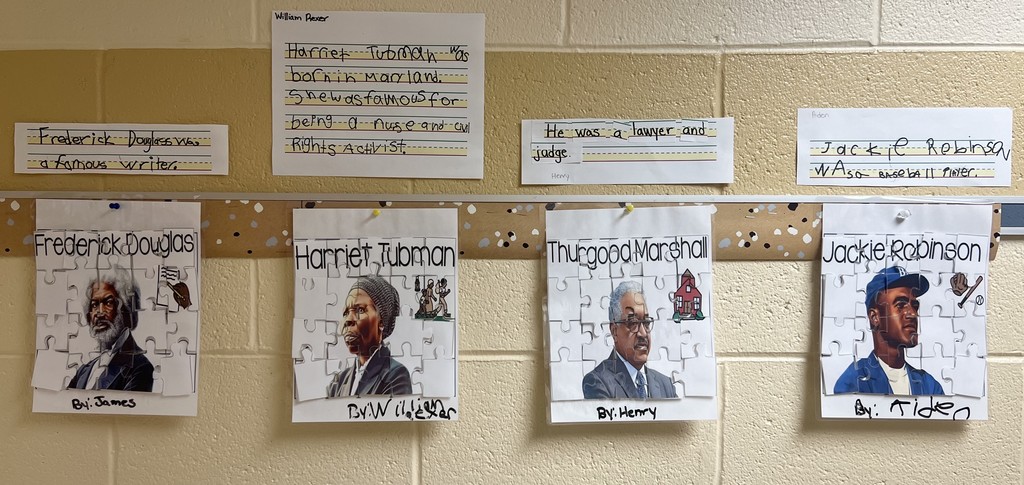 William Rexer
Harriet Tubman was
born in Maryland.
She was famous for
being a nuse and civil
Rights Activist.
Frederick Douglass was
a famous writer.
He was a lawyer and
judge.
Henry
Aiden
Jackie Robinson
WAs a BASEBALL PlAYER.
Frederick Douglas
By: James
Harriet Tubman
By: William
Thurgood Marshall
By: Henry
Jackie Robinson
By: Aiden